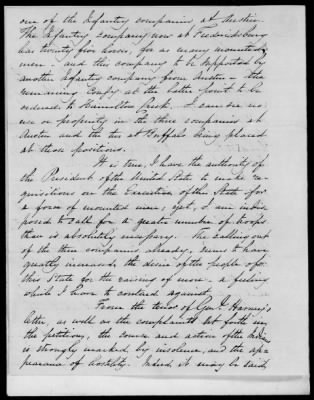 one of the Infantry companies at Austin.
The Infantry company now at Fredericksburg
has twenty five horses, for as many mounted
men - and this company to be supported by
another Infantry company from Austin - the
remaining Compy at the latter point to be
ordered to Hamilton Creek. I can see no
use or propriety in the three companies at
Austin and the two at Buffalo being placed
at those positions.
It is true, I have the authority of
the President of the United States to make re-
quisitions on the Executive of this State for
a force of mounted men; yet, I am indis-
posed to call for a greater number of troops
than is absolutely necessary. The calling out
of the three companies already, seems to have
greatly increased, the desire of the people of
this State for the raising of more - a feeling
which I have to contend against.
From the tenor of Genl. Harney's
letter, as well as the complaints set forth in
the petitions, the course and action of the Indians
is strongly marked by insolence, and the ap-
pearance of hostility. Indeed it may be said